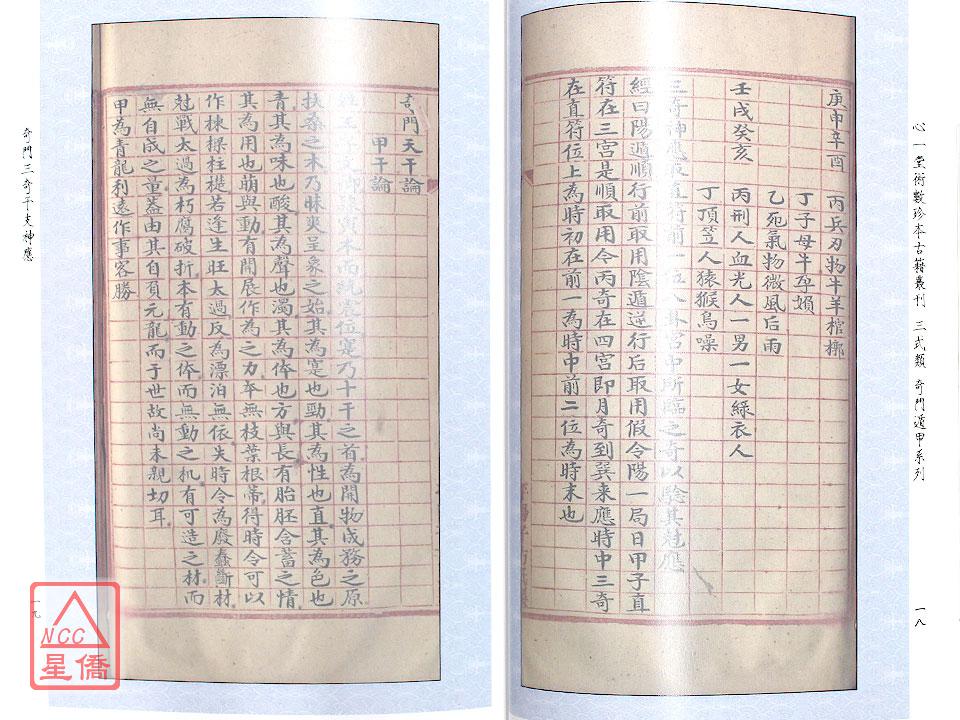 心一堂術數珍本古籍叢刊 三式類 奇門遁甲系列
一八
庚申辛酉 丙兵刃物牛羊棺槨
丁子母牛孕婦
乙死氣物微風后雨
壬戌癸亥 丙刑人血光人一男一女綠衣人
丁頂笠人猿猴鳥噪
三奇 應取直符前一五 宮中所臨之奇以驗其尅應
經曰陽遁順行前取用陰遁逆行后取用假令陽一局日甲子直
符在三宮是順取用令丙奇在四宮即月奇到巽来應時中三奇
在直符位上為時初在前一為時中前二位為時末也
奇門天干論
甲干論
寅木而統震位寔乃十干之首為開物成務之原
扶桑之木乃昧爽呈象之始其為寔也勁其為性也直其為色也
青其為味也酸其為聲也濁其為体也方與長有胎胚含蓄之情
其為用也萌與動有開展作為之力卒無枝葉根蒂得時令可以
作棟樑柱礎若逢生旺太過反為漂泊無依失時令為廢蠢斷材
尅戰太過為朽腐破折本有動之体而無動之机有可造之材而
無自成之重蓋由其自頁元龍而于世故尚未親切耳
甲為青龍利遠作事客勝
奇門三奇干支神應
一九
NCC
星僑